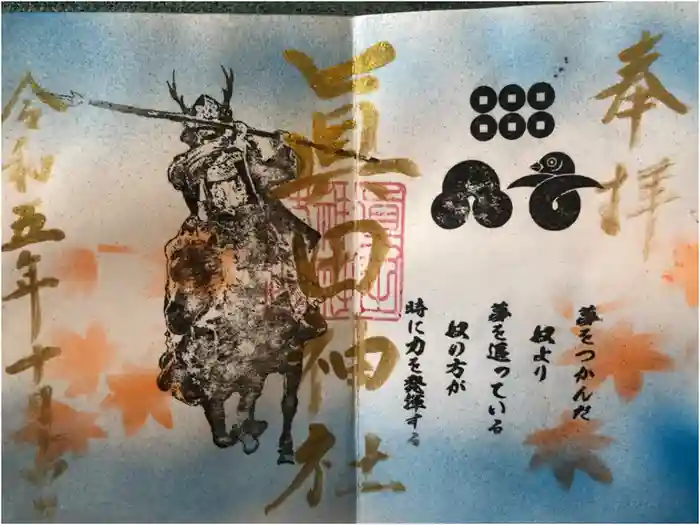 奉拝
夢をつかんだ
奴より
夢を追っている
奴の方が
時に力を発揮する
眞田神社
令和五年十月